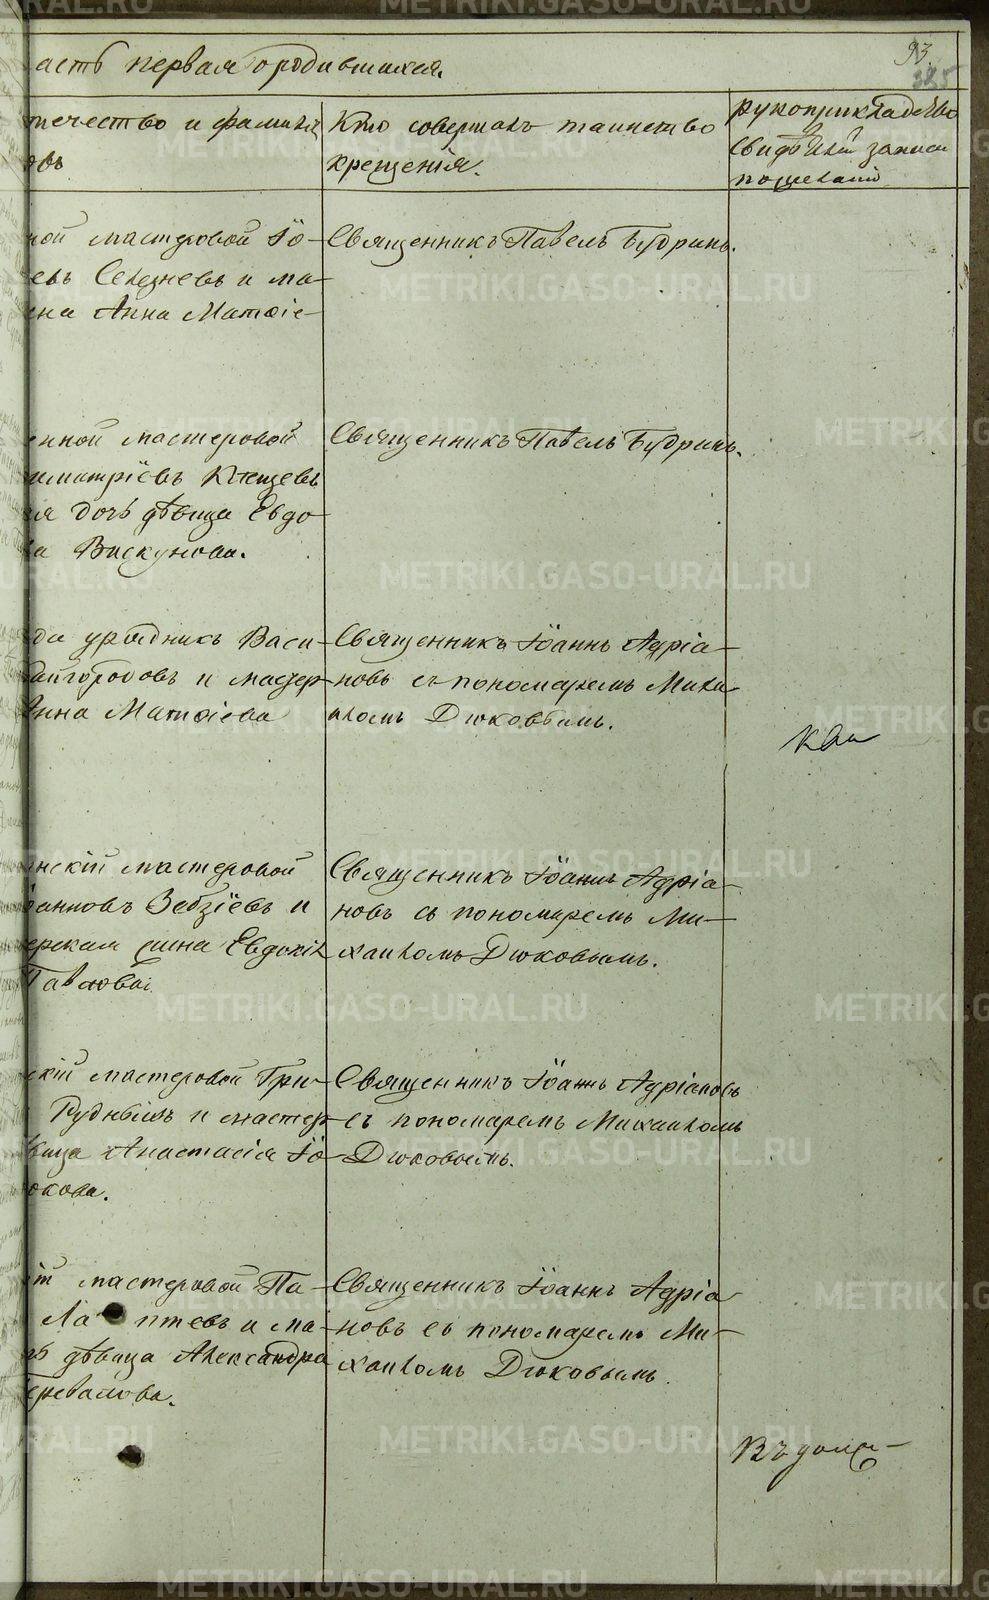 93.
325
асть первая о родившихся.
течество и фамилія
овъ
Кто совершалъ таинство
крещенія.
рукоприкладство
свидѣтелей записи
по желанію
ной мастеровой Іо-
евъ Селезневъ и ма-
ена Анна Матѳіе-
Священникъ Павелъ Будринъ.
енной мастеровой
имитріевъ Клещевъ
ая дочь дѣвица Евдо
ва Вискунова.
Священникъ Павелъ Будринъ.
да урядникъ Васи-
айгородовъ и мастер
Анна Матѳіева
Священникъ Іоаннъ Адріа-
новъ съ пономаремъ Миха
иломъ Дюковымъ.
нскій мастеровой
оанновъ Зебзіевъ и
ерская жена Евдокія
Павловаі
Священникъ Іоаннъ Адріа-
новъ съ пономаремъ Ми-
хаиломъ Дюковымъ.
скій мастеровой Гри-
Рудныхъ и мастер
вица Анастасія Іо
окова.
Священникъ Іоаннъ Адріановъ
съ пономаремъ Михаиломъ
Дюковымъ.
ій мастеровой Па-
Ла птевъ и ма-
ь дѣвица Александра
еревалова.
Священникъ Іоаннъ Адріа
новъ съ пономаремъ Ми-
хаиломъ Дюковымъ.
Въ дол
METRIKI.GASO-URAL.RU